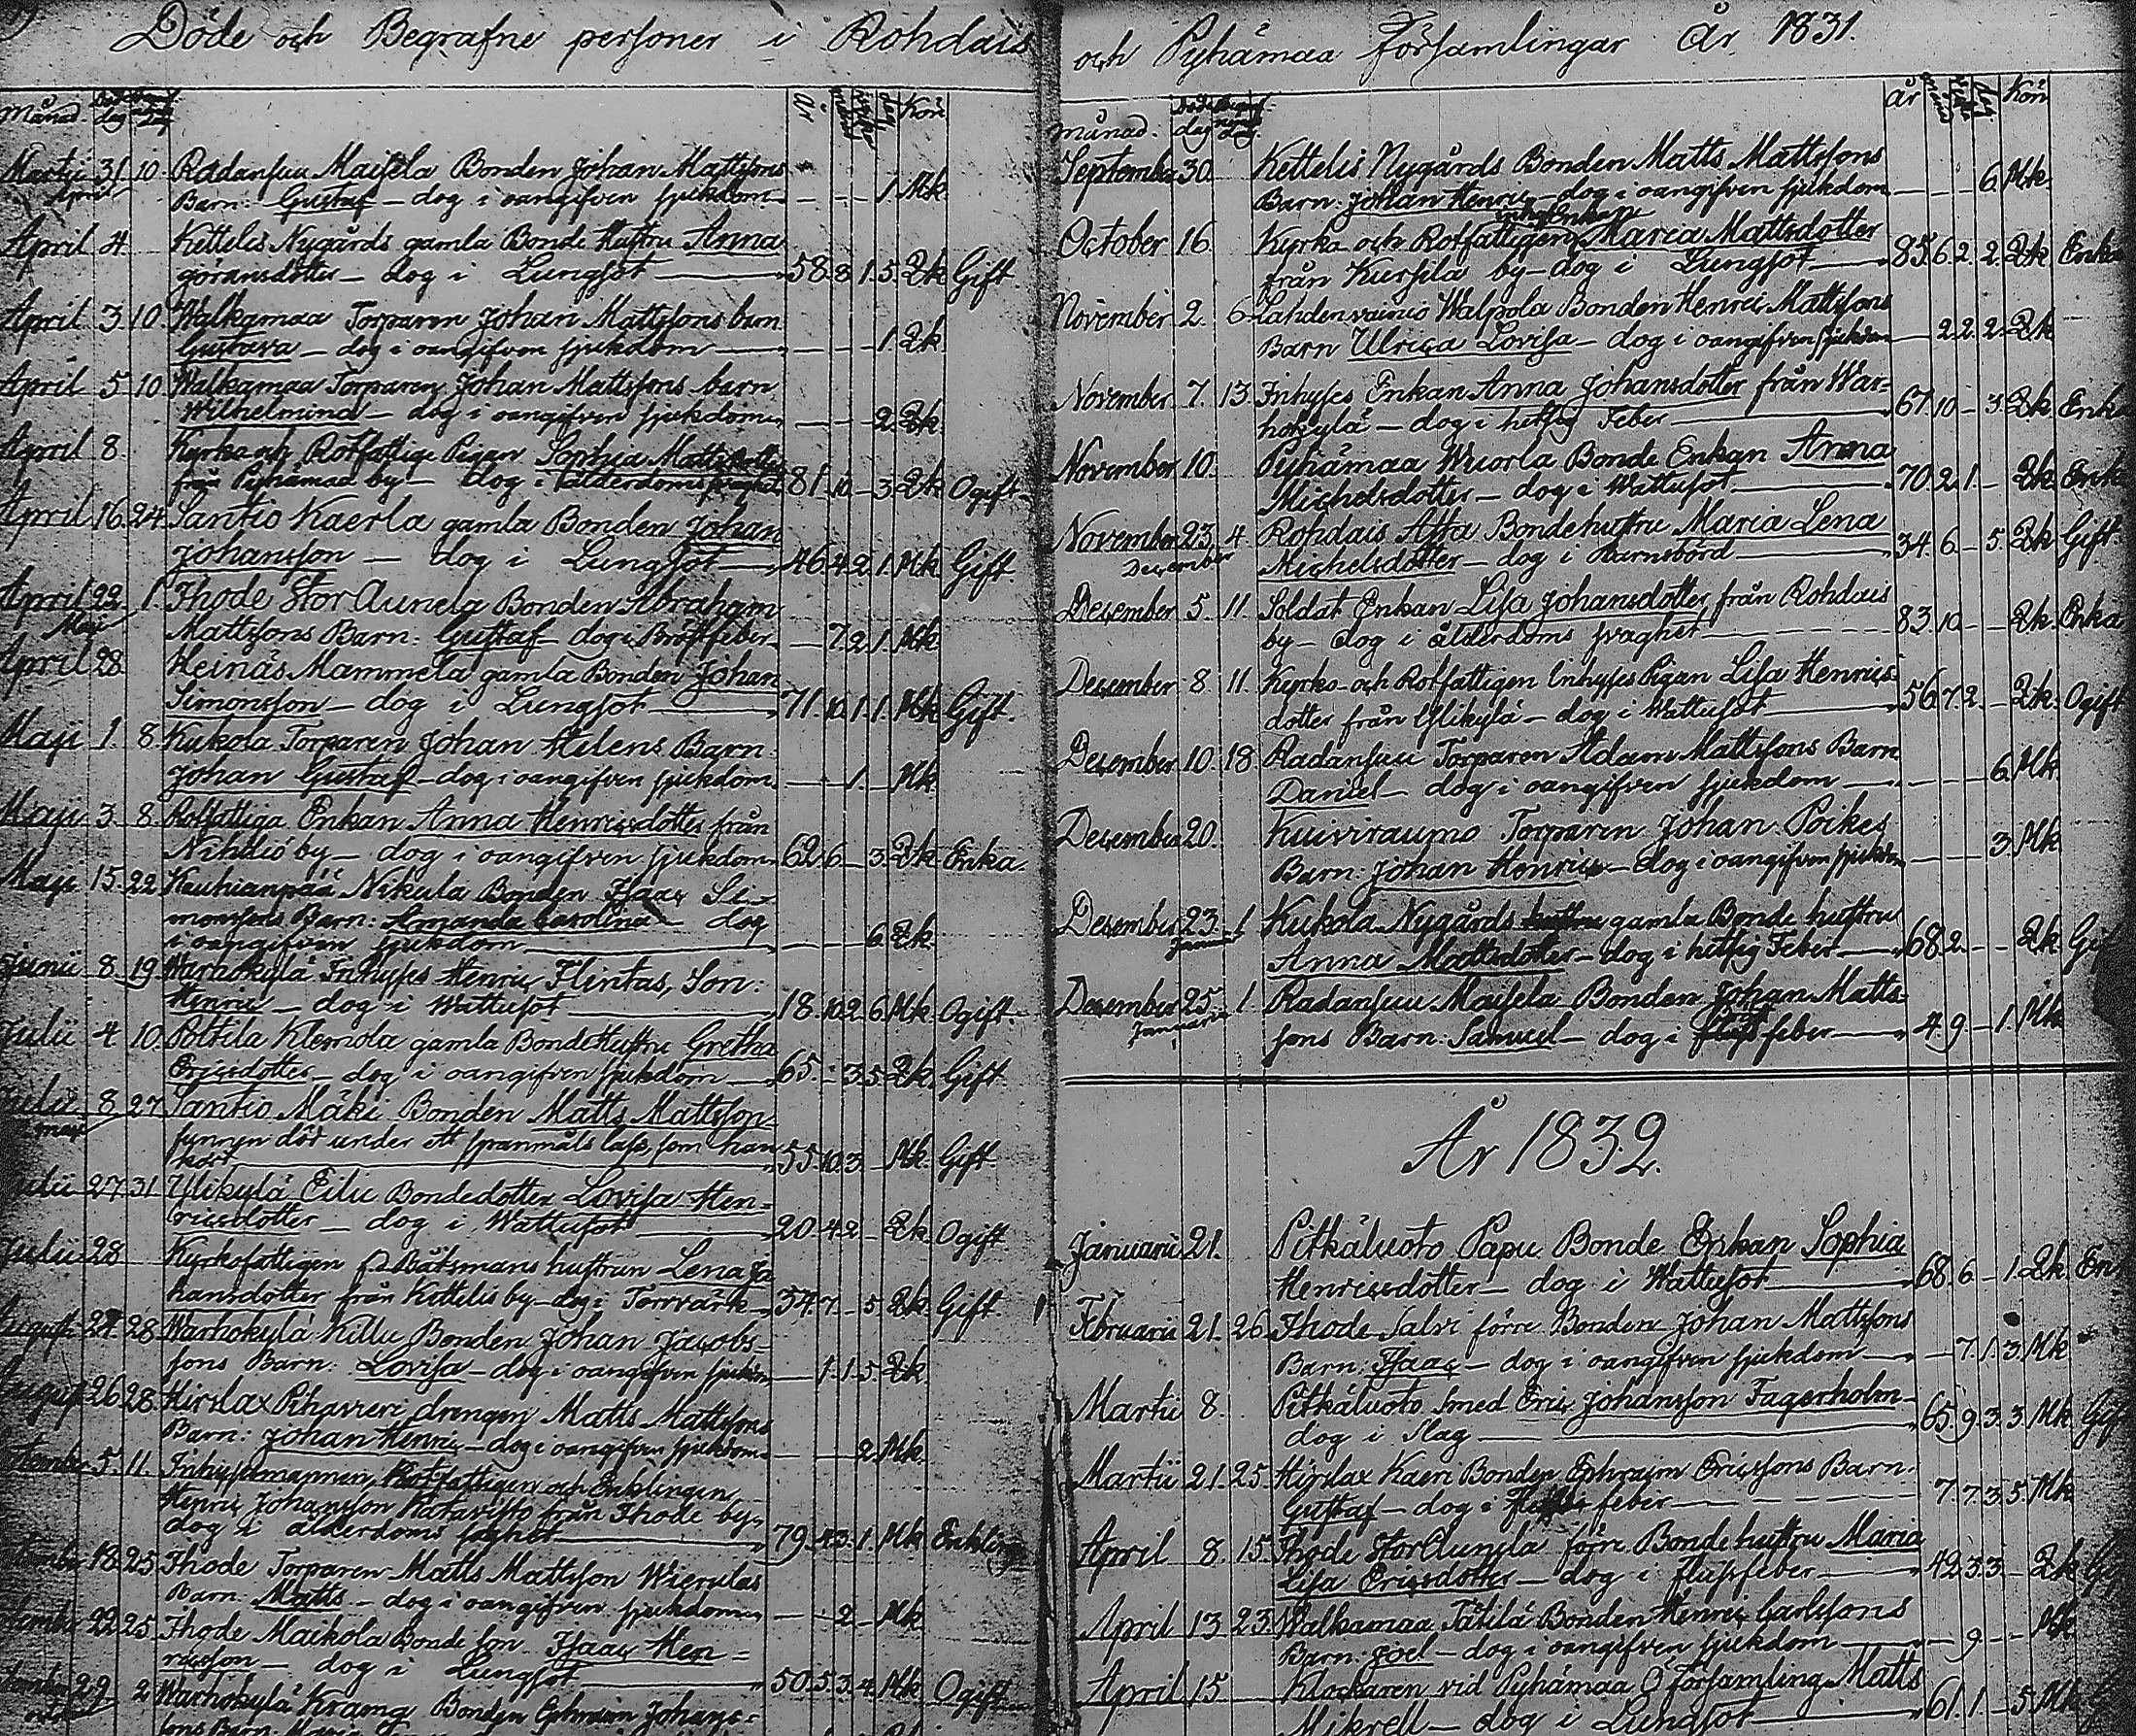 Döde och Begrafne personer i Rohdais
Månad dag År Kön
Martii 31 10 Radansuu Maisela Bonden Johan Mattssons
April Barn: Gustaf — dog i oangifven sjukdom — 1. Mk.
April 4 Kettelis Nygårds gamla Bonde Hustru Anna
Göransdotter — dog i Lungsot — 58. 8. 1. 5. Qk Gift.
April 3. 10. Walkamaa Torparen Johan Mattssons barn
Gustava — dog i oangifven sjukdom — 1. Qk.
April 5 10 Walkamaa Torparen Johan Mattssons barn
Wilhelmina — dog i oangifven sjukdom — 2. Qk.
April 8 Kyrko och Rotfattige Pigan Sophia Mattsdotter
från Pyhämaa by — dog i ålderdoms 81. 10. – 3. Qk Ogift.
April 16. 24. Santio Kaerla gamla Bonden Johan
Johansson — dog i Lungsot — 46. 4. 2. 1. Mk Gift.
April 22 1. Ihode Stor Aunela Bonden Abraham
Maji Mattssons Barn: Gustaf — dog i Bröstfeber — 7. 2. 1. Mk
April 28. Heinäs Mammela gamla Bonden Johan
Simonsson — dog i Lungsot — 71. 10. 1. 1. Mk Gift.
Maji 1. 8. Kukola Torparen Johan Helens Barn:
Johan Gustaf — dog i oangifven sjukdom — 1. Mk
Maji 3. 8 Rotfattiga Enkan Anna Henricsdotter från
Nihdiö by — dog i oangifven sjukdom 62. 6. – 3. Qk Enka.
Maji 15. 22 Kauhianpää Nikula Bonden Isaac Si-
monssons Barn: Amanda Carolina — dog
i oangifven sjukdom — 6. Qk.
Junii 8. 19 Warhokylä Inhyses Henric Flintas, Son:
Henric — dog i Wattusot — 18. 10. 2. 6. Mk Ogift.
Julii 4 10. Polttila Klemola gamla Bonde Hustru Gretha
Ericsdotter — dog i oangifven sjukdom — 65. – 3. 5. Qk. Gift.
Julii 8. 27 Santio Mäki Bonden Matts Mattsson
funnen död under ett spanmåls lass, som han
kört — 55. 10. 3. – Mk. Gift.
Julii 27 31 Ylikylä Eilu Bondedotter Lovisa Hen-
ricsdotter — dog i Wattusot — 20. 4. 2. – Qk Ogift.
Julii 28 Kyrkofattigen Båtsmans hustrun Lena Jo
hansdotter från Kettelis by — dog i Torrvärk — 34. 7. – 5. Qk Gift
August 27. 28 Warhokylä Killu Bonden Johan Jacobs-
sons Barn: Lovisa — dog i oangifven sjukdom — 1. 1. 5. Qk
August 26 28 Hirslax Pihavieri drengen Matts Mattssons
Barn: Johan Henric — dog i oangifven sjukdom — 2. Mk.
September 5. 11. Inhysesmannen, Rotfattigen och Enklingen
Henric Johansson Katavisto från Ihode by,
dog i ålderdoms — 79. 4. 3. 1. Mk Enkling
September 18. 25 Ihode Torparen Matts Mattsson Wierulas
Barn: Matts — dog i oangifven sjukdom — 2. – Mk
September 22 25 Ihode Maikola Bonde son Isaac Hen-
ricsson — dog i Lungsot — 50. 5. 3. 4. Mk Ogift
September 29 2 Warhokylä Krama Bonden Ephraim Johans-
sons Barn: Maria
och Pyhämaa Församlingar År 1831.
Månad. dag År Kön
September 30. Kettelis Nygårds Bonden Matts Mattssons
Barn: Johan Henric — dog i oangifven sjukdom — 6. Mk.
October 16. Kyrko och Rotfattigen Enkan Maria Mattsdotter
från Kursila by — dog i Lungsot — 85. 6. 2. 2. Qk Enka
November 2. 6 Lahdenvainio Walpola Bonden Henric Mattssons
Barn Ulrica Lovisa — dog i oangifven sjukdom — 2. 2. 2. Qk
November 7. 13. Inhyses Enkan Anna Johansdotter från War-
hokylä — dog i hetsig Feber — 67. 10. – 3. Qk Enka
November 10. Pyhämaa Wuorla Bonde Enkan Anna
Michelsdotter — dog i Wattusot — 70. 2. 1. – Qk Enka
November 23. 4. Rohdais Atta Bondehustru Maria Lena
December Michelsdotter — dog i Barnsbörd — 34. 6. – 5. Qk Gift.
December 5 11. Soldat Enkan Lisa Johansdotter från Rohdais
by — dog i ålderdoms svaghet — 83. 10. – – Qk. Enka
December 8. 11. Kyrko- och Rotfattigen Inhyses Pigan Lisa Henrics-
dotter från Ylikylä — dog i Wattusot — 56. 7. 2. – Qk. Ogift
December 10. 18. Radansuu Torparen Adam Mattssons Barn
Daniel — dog i oangifven sjukdom — 6. Mk.
December 20. Kuiviraumo Torparen Johan Poikes
Barn: Johan Henric — dog i oangifven sjukdom — 3. Mk
December 23. 1 Kukola Nygårds gamla Bonde hustru
Januari Anna Mattsdotter — dog i hetsig Feber — 68. 2. – – Qk Gif
December 25. 1. Radansuu Maisela Bonden Johan Matts-
Januarii sons Barn: Samuel — dog i fluss feber — 4. 9. – 1. Mk
År 1832.
Januarii 21. Pitkäluoto Papu Bonde Enkan Sophia
Henricsdotter — dog i Wattusot — 68. 6. – 1. Qk. En
Februarii 21. 26. Ihode Salvi förre Bonden Johan Mattssons
Barn: Isaac — dog i oangifven sjukdom — 7. 1. 3. Mk
Martii 8. Pitkäluoto Smed Eric Johansson Fagerholm —
dog i Slag — 65. 9. 3. 3. Mk Gif
Martii 21. 25. Hirslax Kaeri Bonden Ephraim Ericssons Barn:
Gustaf — dog i feber — 7. 7. 3. 5. Mk
April 8. 15. Ihode Stor Aunela förre Bonde hustru Maria
Lisa Ericsdotter — dog i flussfeber — 42. 3. 3. – Qk Gif
April 13 23. Walkamaa Tätilä Bonden Henric Carlssons
Barn: Joel — dog i oangifven sjukdom — 9. – – Mk
April 15 Klockaren vid Pyhämaa Ö Församling Matts
Mikrell — dog i Lungsot — 61. 1. – 5. Mk G